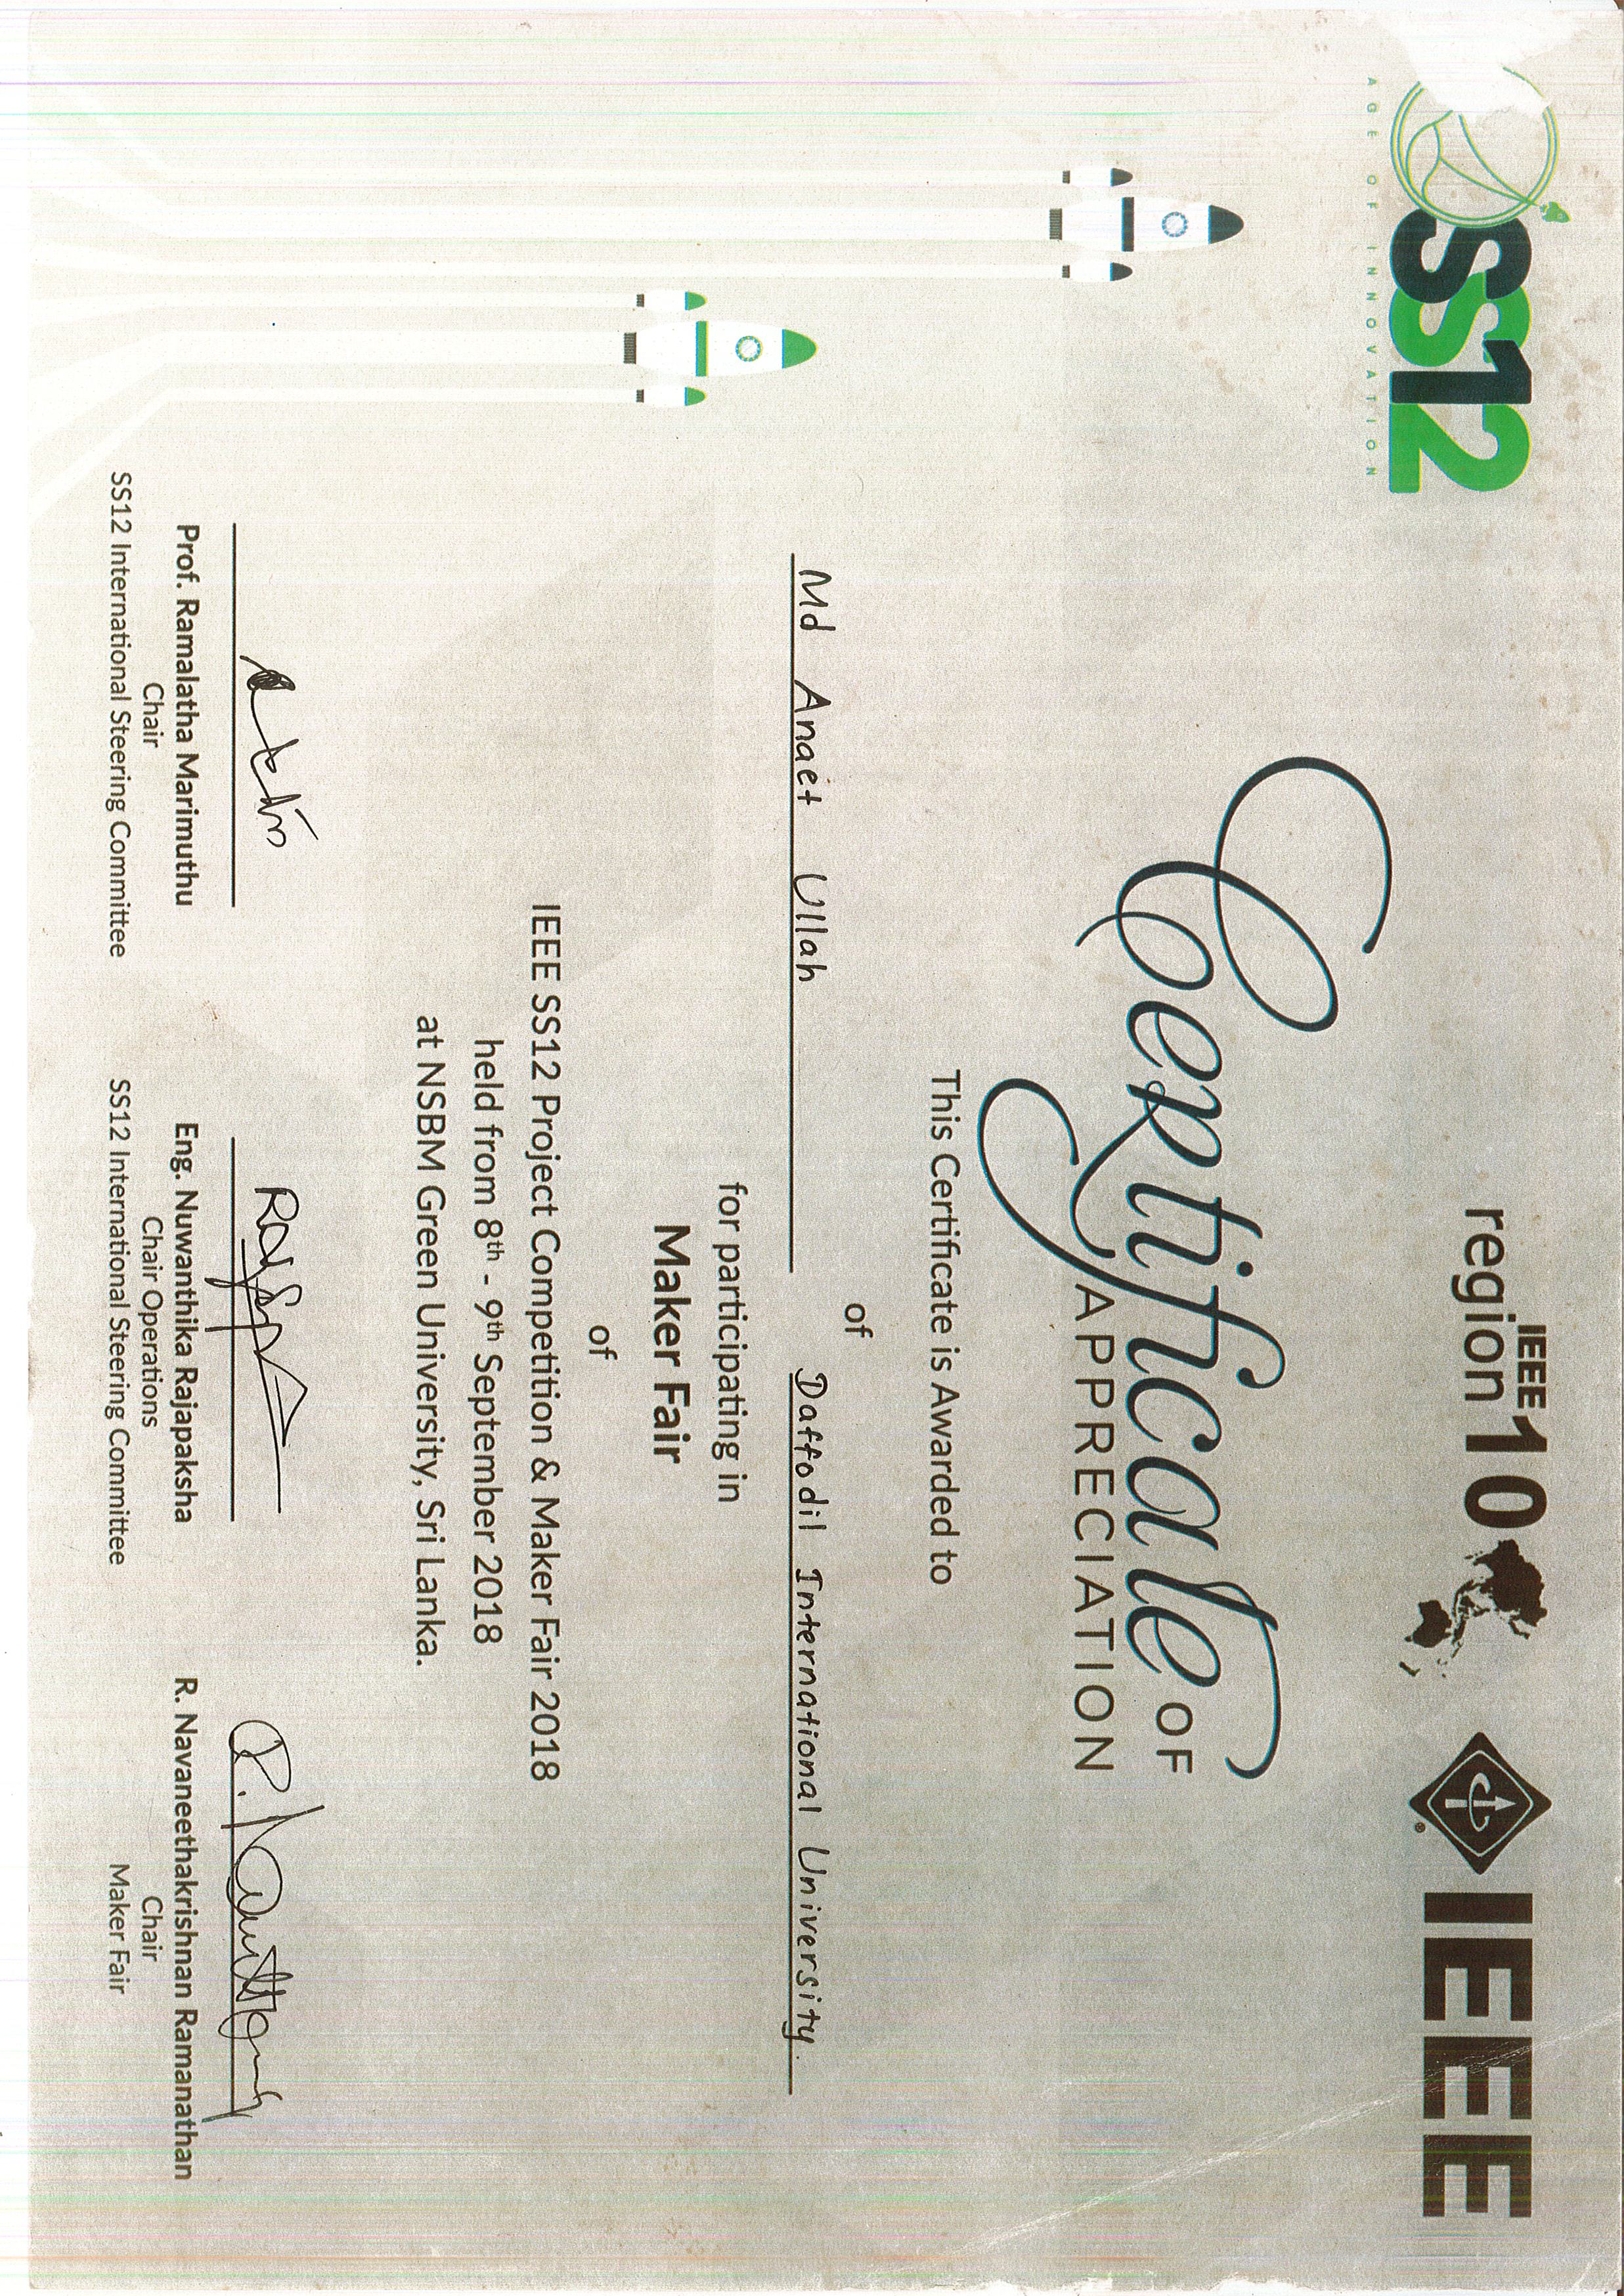 SS12
AGE OF INNOVATION
IEEE
region 10
IEEE
Certificate OF
APPRECIATION
This Certificate is Awarded to
of
Md Anaet Ullah Daffodil International University.
for participating in
Maker Fair
of
IEEE SS12 Project Competition & Maker Fair 2018
held from 8th - 9th September 2018
at NSBM Green University, Sri Lanka.
Prof. Ramalatha Marimuthu
Chair
SS12 International Steering Committee
Eng. Nuwanthika Rajapaksha
Chair Operations
SS12 International Steering Committee
R. Navaneethakrishnan Ramanathan
Chair
Maker Fair